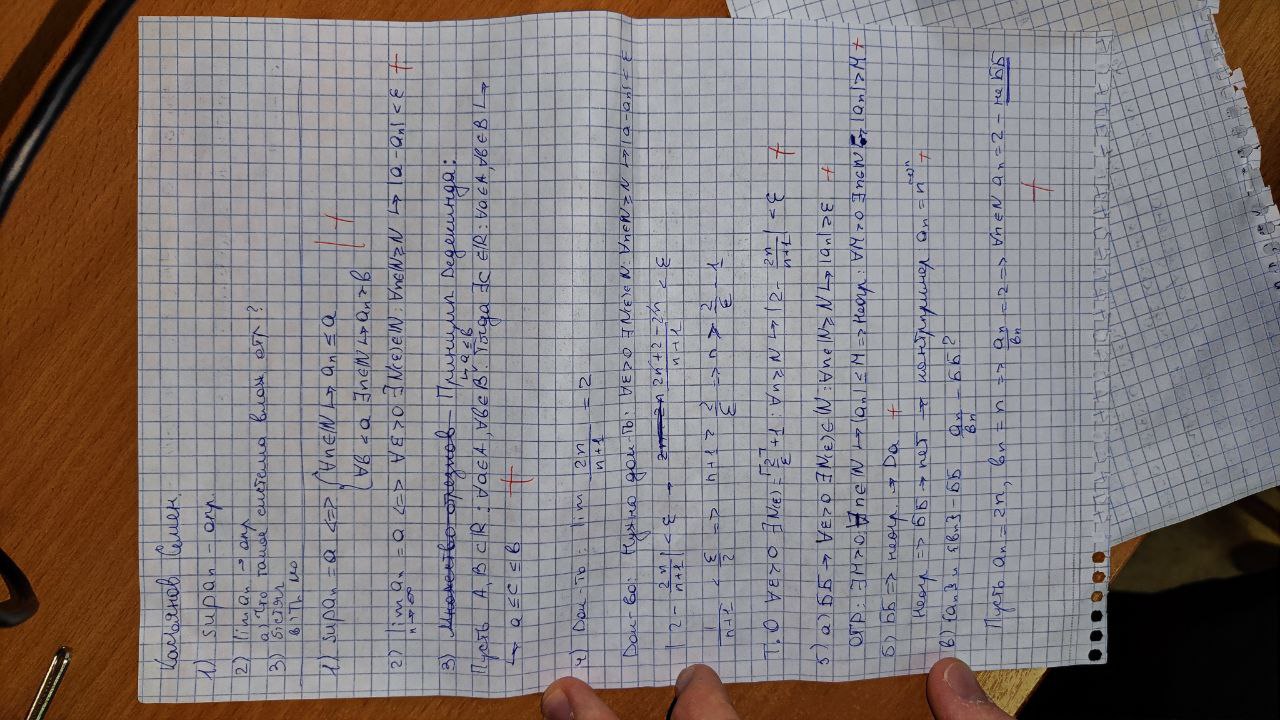 Касьянов Семен.
1) sup aₙ – опр
2) lim aₙ → опр
а) Что такое система влож. отр?
3)
в)
1) sup aₙ = a <=> { ∀n∈ℕ ↦ aₙ ≤ a
∀b < a ∃n∈ℕ ↦ aₙ > b
2) lim aₙ = a <=> ∀ε>0 ∃N(ε)∈ℕ: ∀n∈ℕ≥N ↦ |a-aₙ| < ε +
n→∞
3) Принцип Дедекинда:
Пусть A, B ⊂ ℝ : ∀a∈A, ∀b∈B ↦ a≤b. Тогда ∃c∈ℝ: ∀a∈A, ∀b∈B ↦
↦ a ≤ c ≤ b +
4) Док-ть: lim 2n/(n+1) = 2
Док-во: Нужно док-ть: ∀ε>0 ∃N(ε)∈ℕ: ∀n∈ℕ≥N ↦ |a-aₙ| < ε
|2 - 2n/(n+1)| < ε → (2n+2-2n)/(n+1) < ε
1/(n+1) < ε/2 => n+1 > 2/ε => n > 2/ε - 1
Т.О ∀ε>0 ∃N(ε) = ⌈2/ε⌉+1 : ∀n≥N ↦ |2 - 2n/(n+1)| < ε +
5) а) ББ → ∀ε>0 ∃N(ε)∈ℕ: ∀n∈ℕ≥N ↦ |aₙ| > ε +
ОГР: ∃M>0 ∀n∈ℕ ↦ |aₙ| ≤ M => Неогр: ∀M>0 ∃n∈ℕ ↦ |aₙ| > M +
Б) ББ => неогр. → Да +
Неогр => ББ → нет → контрпример aₙ = n^(-1)ⁿ +
в) {aₙ} и {bₙ} – ББ aₙ/bₙ – ББ?
Пусть aₙ = 2n, bₙ = n => aₙ/bₙ = 2 => ∀n∈ℕ aₙ = 2 – не ББ
+